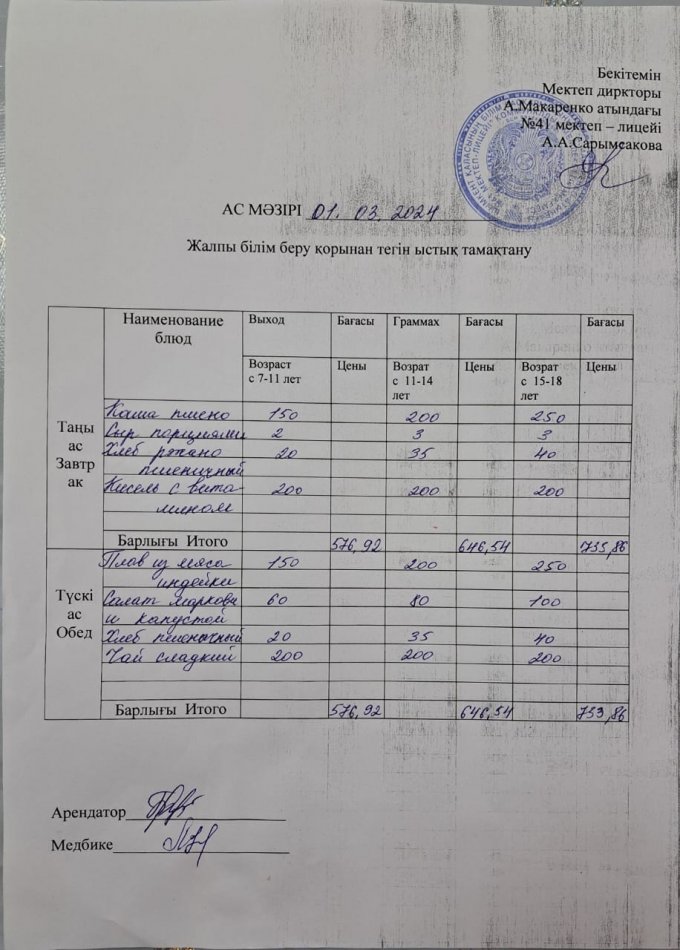 Бекітемін
Мектеп диркторы
А.Макаренко атындағы
№41 мектеп – лицейі
А.А.Сарымсакова
АС МӘЗІРІ 01. 03. 2024
Жалпы білім беру қорынан тегін ыстық тамақтану
Наименование блюд Выход Бағасы Граммах Бағасы Бағасы
Возраст с 7-11 лет Цены Возрат с 11-14 лет Цены Возрат с 15-18 лет Цены
Таңы ас Завтр ак
Каша пшено 150 200 250
Сыр порциями 2 3 3
Хлеб ржано 20 35 40
пшеничный
Кисель с вита- 200 200 200
мином
Барлығы Итого 576,92 646,54 733,86
Түскі ас Обед
Плов из мяса 150 200 250
индейки
Салат моркови 60 80 100
и капустой
Хлеб пшеничный 20 35 40
Чай сладкий 200 200 200
Барлығы Итого 576,92 646,54 733,86
Арендатор
Медбике